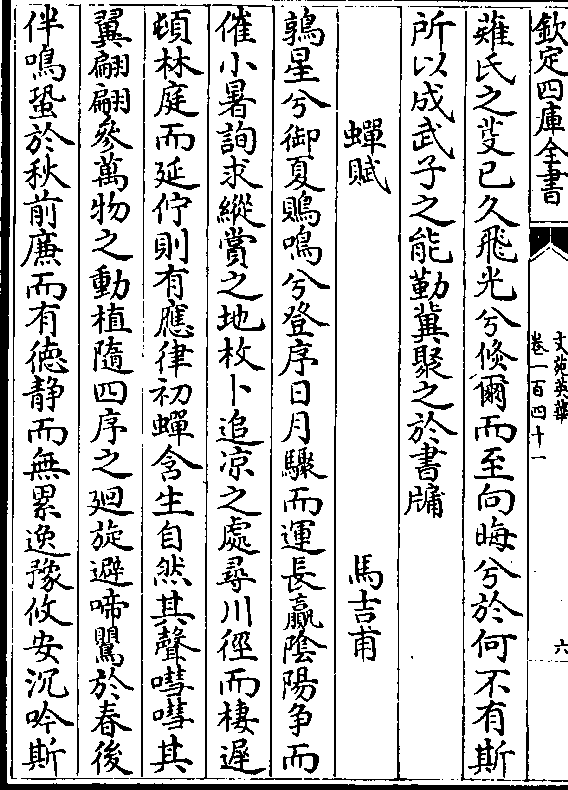 欽定四庫全書
文苑英華
卷一百四十一
六
薙氏之芟已久飛光兮倏爾而至向晦兮於何不有斯
所以成武子之能勤冀聚之於書牖
蟬賦 馬吉甫
鶉星兮御夏鵙鳴兮登序日月驟而運長贏陰陽争而
催小暑詢求縱賞之地枚卜追凉之處尋川徑而棲遲
頓林庭而延佇則有應律初蟬含生自然其聲嘒嘒其
翼翩翩參萬物之動植隨四序之廻旋避啼鸎於春後
伴鳴蛩於秋前廉而有徳静而無累逸豫攸安沉吟斯